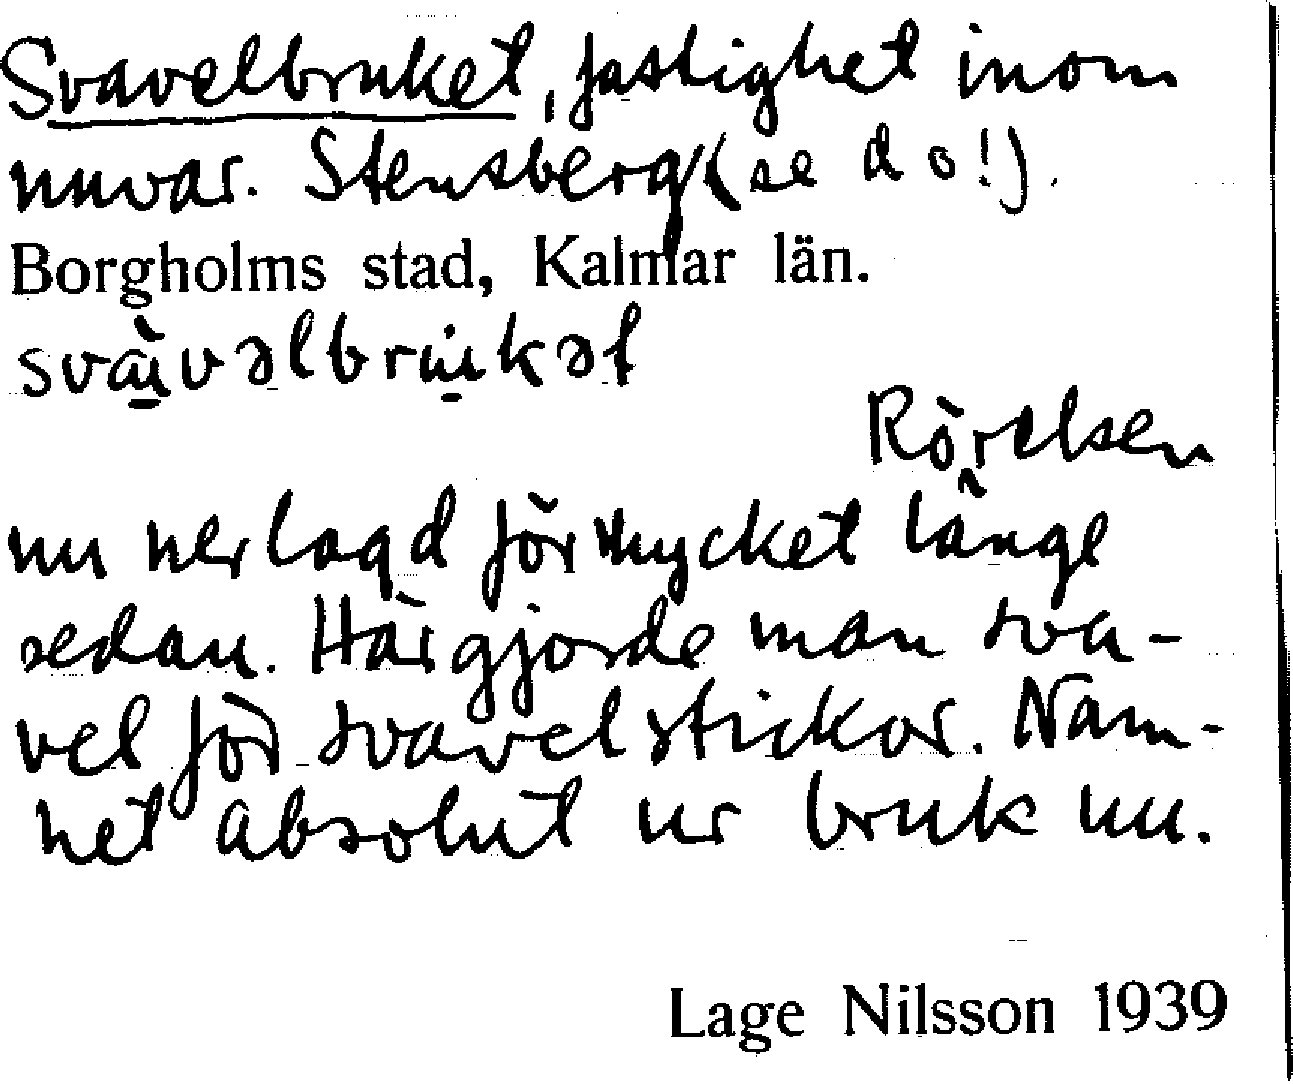 Svavelbruket, fastighet inom
nuvar. Stensberg (se d o!).
Borgholms stad, Kalmar län.
svàvəlbrukət
Rörelsen
nu nerlagd för mycket länge
sedan. Här gjorde man sva-
vel för svavelstickor. Nam-
net absolut ur bruk nu.
Lage Nilsson 1939